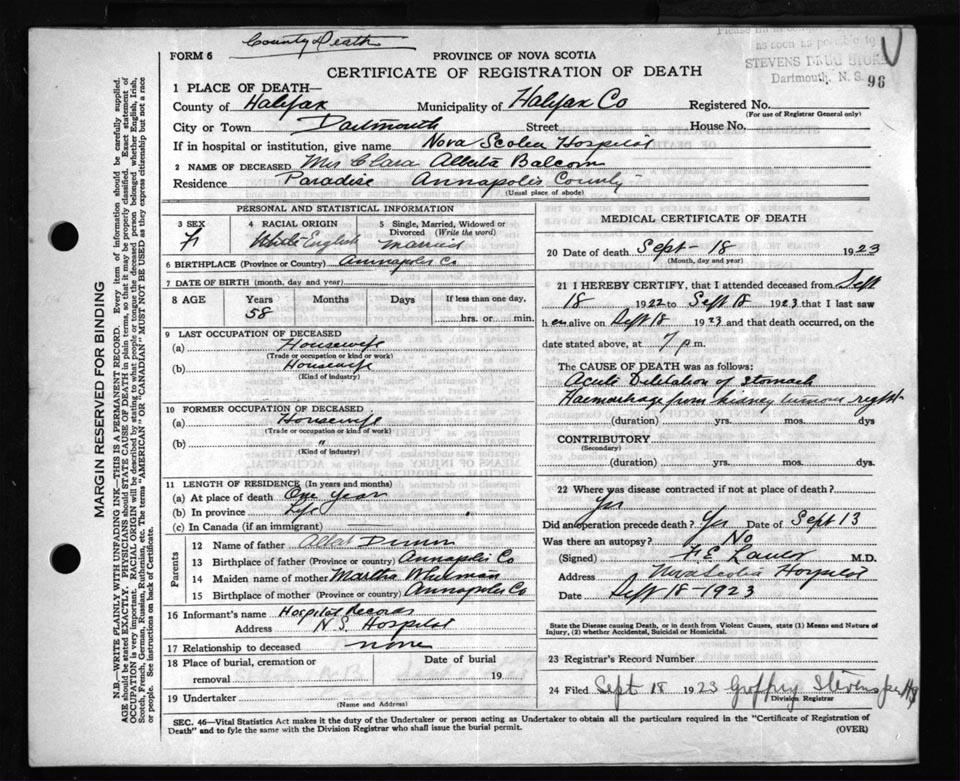 County Death
Please fill in
as soon as possible to
STEVENS DRUG STORE
Dartmouth, N. S. 98
FORM 6
PROVINCE OF NOVA SCOTIA
CERTIFICATE OF REGISTRATION OF DEATH
1 PLACE OF DEATH—
County of Halifax Municipality of Halifax Co Registered No.
(For use of Registrar General only)
City or Town Dartmouth Street House No.
If in hospital or institution, give name Nova Scotia Hospital
2 NAME OF DECEASED Mrs Clara Alberta Balcom
Residence Paradise Annapolis County
(Usual place of abode)
PERSONAL AND STATISTICAL INFORMATION
3 SEX
4 RACIAL ORIGIN
5 Single, Married, Widowed or Divorced (Write the word)
F White English Married
6 BIRTHPLACE (Province or Country) Annapolis Co
7 DATE OF BIRTH (month, day and year)
8 AGE Years Months Days If less than one day,
58 hrs. or min.
9 LAST OCCUPATION OF DECEASED
(a) Housewife
(Trade or occupation or kind or work)
(b) Housewife
(Kind of industry)
10 FORMER OCCUPATION OF DECEASED
(a) Housewife
(Trade or occupation or kind of work)
(b) "
(Kind of industry)
11 LENGTH OF RESIDENCE (In years and months)
(a) At place of death One year
(b) In province Life
(c) In Canada (if an immigrant)
Parents
12 Name of father Albert Dunn
13 Birthplace of father (Province or Country) Annapolis Co
14 Maiden name of mother Martha Whitman
15 Birthplace of mother (Province or country) Annapolis Co
16 Informant's name Hospital Records
Address N.S. Hospital
17 Relationship to deceased none
18 Place of burial, cremation or removal
Date of burial
19
19 Undertaker
(Name and Address)
MEDICAL CERTIFICATE OF DEATH
20 Date of death Sept- 18 1923
(Month, day and year)
21 I HEREBY CERTIFY, that I attended deceased from Sept
18 1922 to Sept 18 1923 that I last saw
her alive on Sept 18 1923 and that death occurred, on
date stated above, at 7 p m.
The CAUSE OF DEATH was as follows:
Acute Dilitation of stomach
Haemorrhage from kidney tumour right
(duration) yrs. mos. dys
CONTRIBUTORY
(Secondary)
(duration) yrs. mos. dys.
22 Where was disease contracted if not at place of death?
Yes
Did an operation precede death? Yes Date of Sept 13
Was there an autopsy? No
(Signed) F E Lawlor M.D.
Address Nova Scotia Hospital
Date Sept 18-1923
State the Disease causing Death, or in death from Violent Causes, state (1) Means and Nature of
Injury, (2) whether Accidental, Suicidal or Homicidal.
23 Registrar's Record Number
24 Filed Sept 18 1923 Geoffrey Stevens per
Division Registrar
SEC. 46—Vital Statistics Act makes it the duty of the Undertaker or person acting as Undertaker to obtain all the particulars required in the "Certificate of Registration of
Death" and to fyle the same with the Division Registrar who shall issue the burial permit.
(OVER)
MARGIN RESERVED FOR BINDING
N.B.—WRITE PLAINLY WITH UNFADING INK—THIS IS A PERMANENT RECORD. Every item of information should be carefully supplied.
AGE should be stated EXACTLY. PHYSICIANS should STATE CAUSE OF DEATH in plain terms, so that it may be properly classified. Exact statement of
OCCUPATION is very important. RACIAL ORIGIN will be described by stating to what people or tongue the deceased person belonged whether English, Irish,
Scotch, French, German, Russian, Ruthenian, etc. The terms "AMERICAN" OR "CANADIAN" MUST NOT BE USED as they express citizenship but not a race
or people. See instructions on back of Certificate.